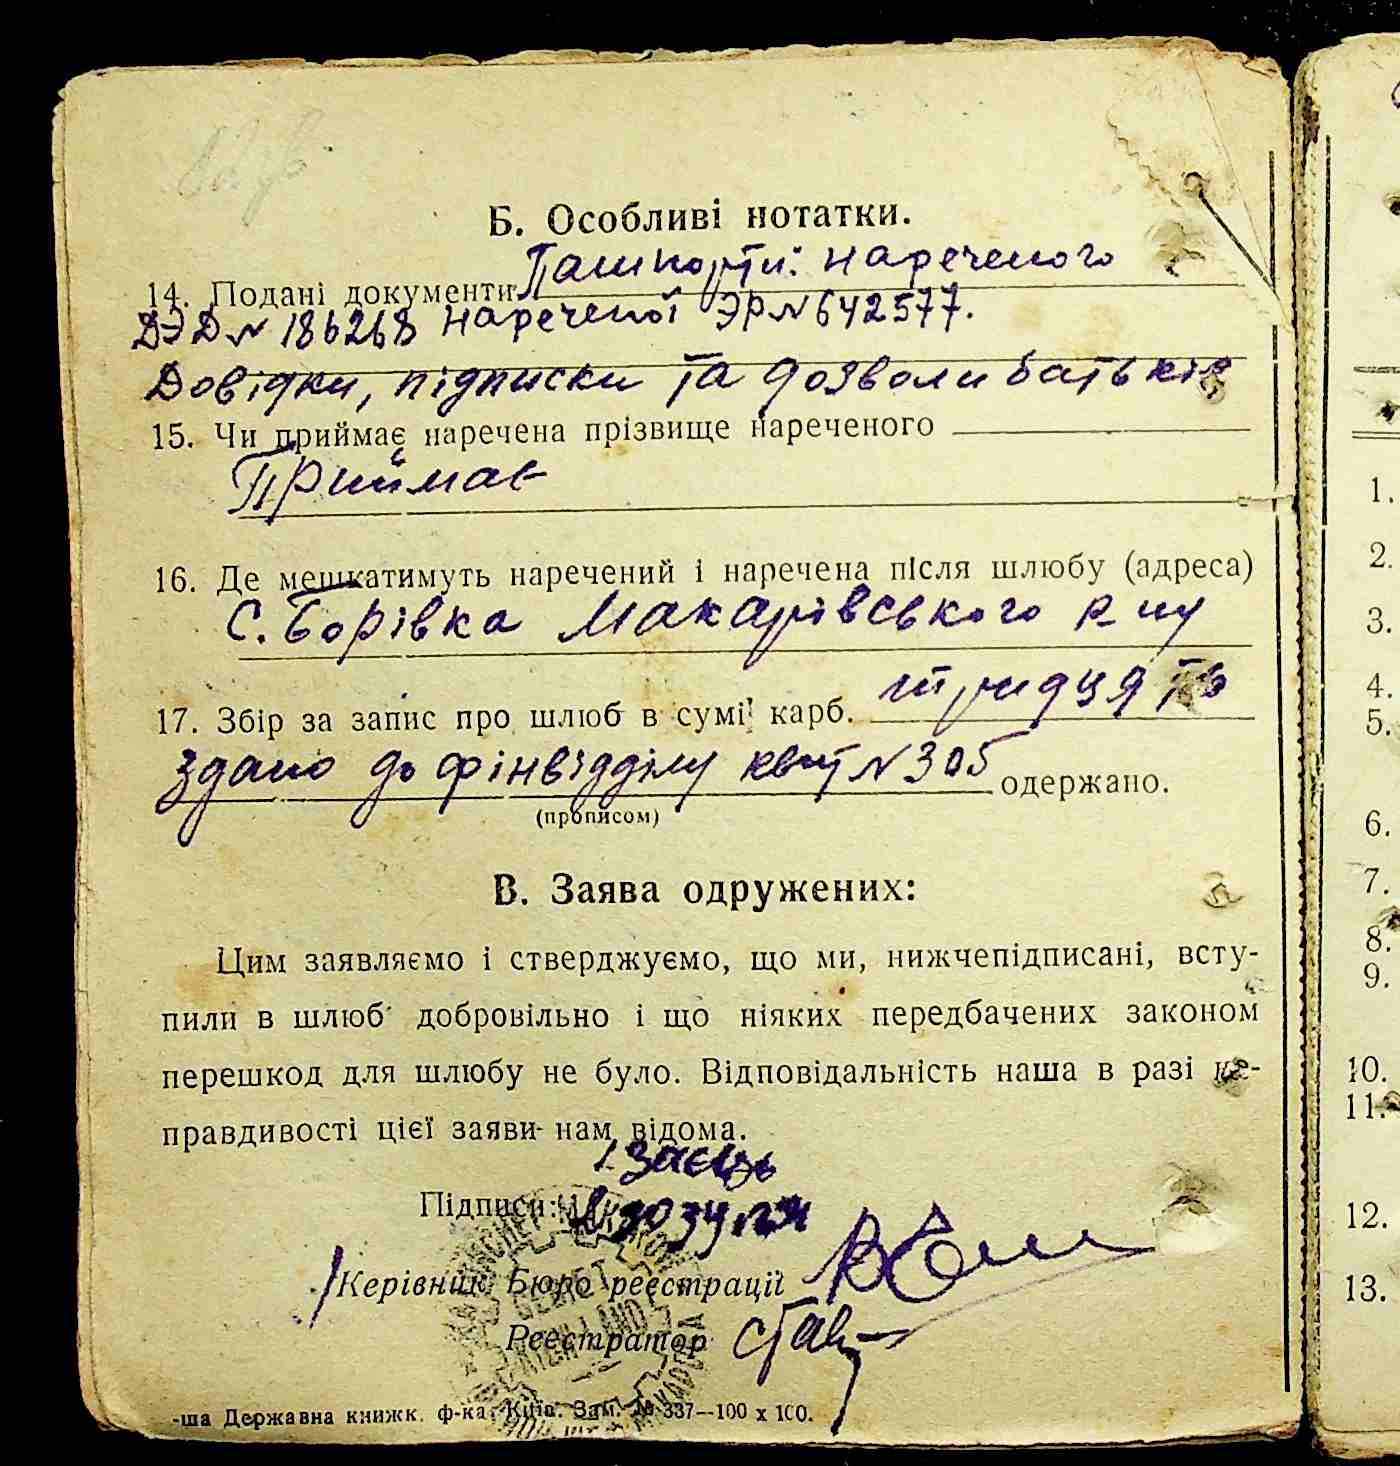 Б. Особливі нотатки.
14. Подані документи Пашпорти: нареченого
ДЭД № 186268 нареченої ЭР № 642577.
Довідки, підписки та дозволи батьків
15. Чи приймає наречена прізвище нареченого
Приймає
16. Де мешкатимуть наречений і наречена після шлюбу (адреса)
С. Борівка Макарівського р-ну
17. Збір за запис про шлюб в сумі карб. тридцять
здано до фінвідділу квит № 305 одержано.
(прописом)
В. Заява одружених:
Цим заявляємо і стверджуємо, що ми, нижчепідписані, всту-
пили в шлюб добровільно і що ніяких передбачених законом
перешкод для шлюбу не було. Відповідальність наша в разі не-
правдивості цієї заяви нам відома.
Заєць
Підписи:
Керівник Бюро реєстрації
Реєстратор
-ша Державна книжк. ф-ка, Київ. Зам. № 337—100 х 100.
1.
2.
3.
4.
5.
6.
7.
8.
9.
10.
11.
12.
13.